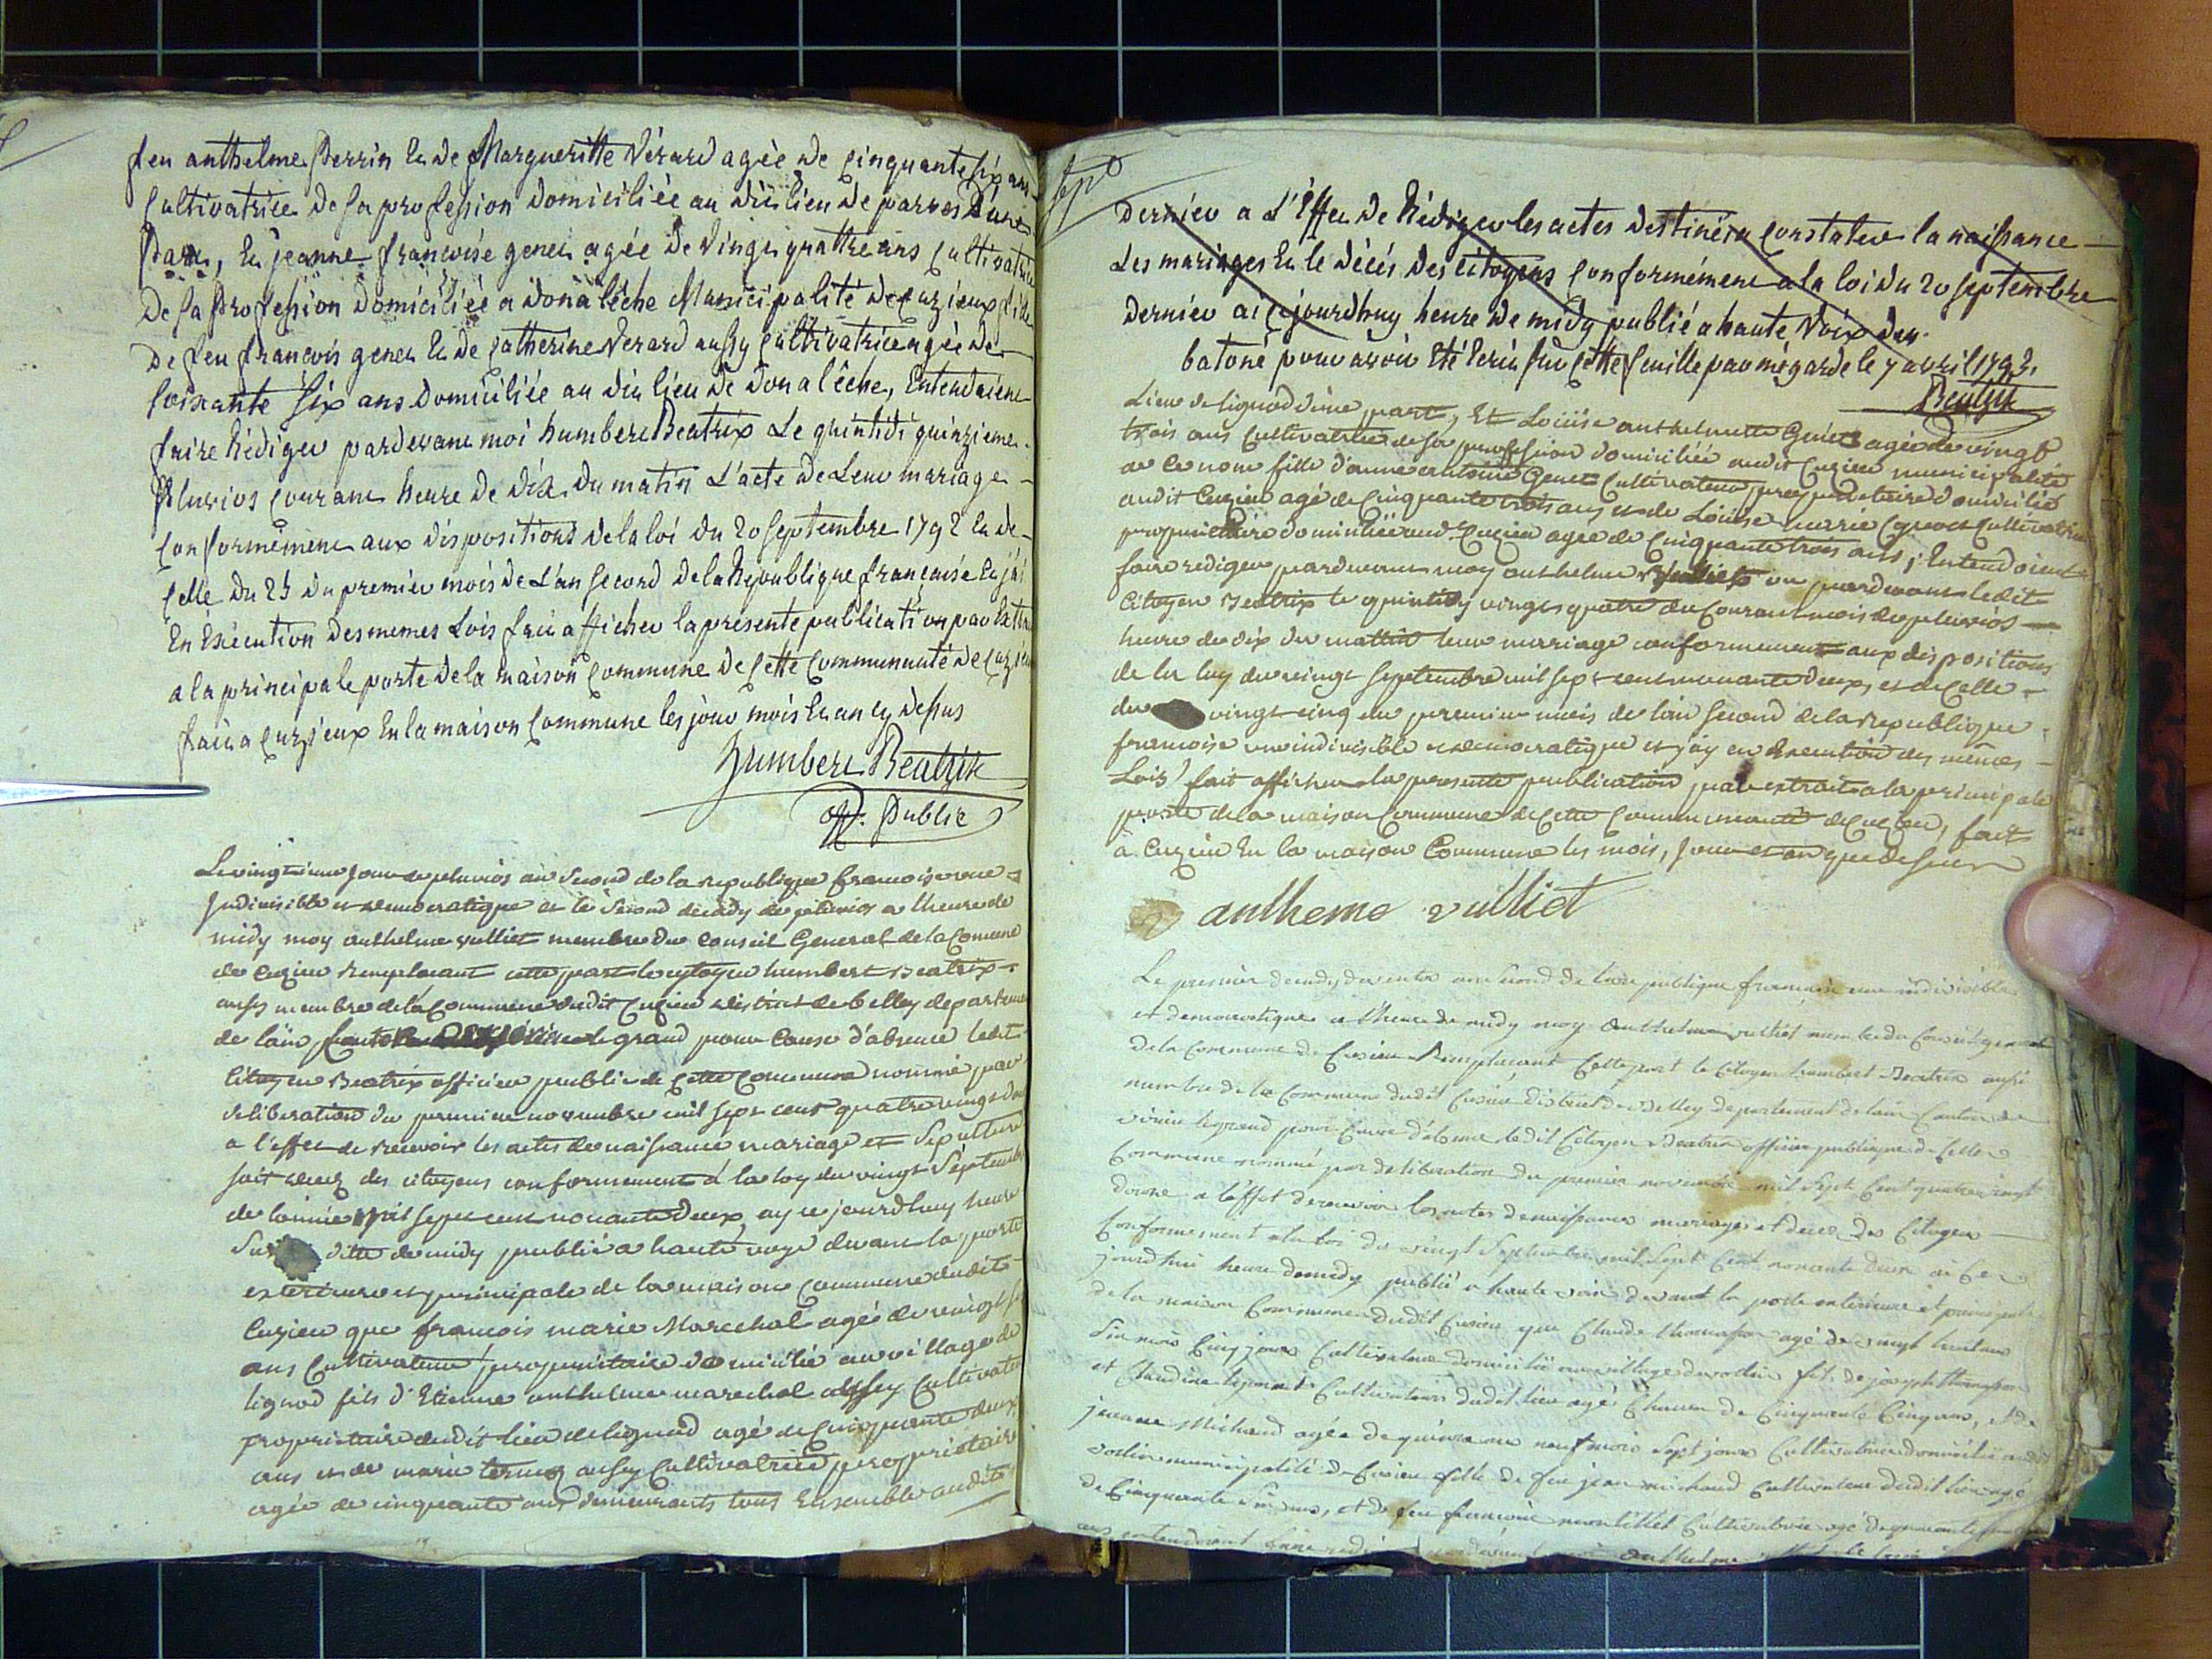 feu anthelme Perrin Et de Margueritte Vérard agée de cinquante six ans
Cultivatrice de sa profession domiciliée au dit lieu de parves d'une
Part, Et jeanne françoise genet agée de Vingt quattre ans Cultivatrice
de sa Profession domiciliée a donalêche Municipalité de cuzieux fille
de feu francois genet Et de Catherine Verard aussy Cultivatrice agée de
soixante six ans domiciliée au dit lieu de donalêche, Entendaient
faire Rédiger pardevant moi humbert Beatrix Le quintidi quinzieme
Pluvios courant heure de dix du matin L'acte de Leur mariage
conformément aux dispositions de la loi du 20 septembre 1792 Et de
Celle du 25 du premier mois de L'an second de la République française Et j'ai
En Exécution des memes Lois fait afficher la présente publication par Extrait
a la principale porte de la maison commune de cette communauté de cuzieux
fait a cuzieux En la maison commune les jour mois Et an cy dessus
humbert Beatrix
off. Public
Le vingtieme jour de pluvios an second de la republique francoise une
Indivisible et democratique et le second décady de pluvios a lheure de
midy moy anthelme vulliet membre du Conseil General de la Comune
de Cuzieu Remplacant cette part le citoyen humbert Beatrix
aussy membre de la Commune dudit Cuzieu district de belley departement
de lain le grand pour Cause d'absence ledit
Citoyen Beatrix officier public de cette Commune nommé par
deliberation du premier novembre mil sept cent quatre vingt douze
a l'effet de recevoir les actes de naissance mariage et Sepulture
soit decez des citoyens conformement à la loy du vingt Septembre
de lannée mil sept cent nonante deux, ay ce jourdhuy heure
Sus ditte de midy publié a haute voye devant la porte
exterieure et principale de la maison commune dudit
Cuzieu que francois marie Marechal agé de vingt
ans Cultivateur proprietaire domicilié au village de
lignod fils d'Etienne anthelme marechal aussy Cultivateur
proprietaire dudit lieu de lignod agé de Cinquante deux
ans et de marie aussy Cultivatrice proprietaire
agée de cinquante ans demeurants tous Ensemble audit
dernier a L'Effet de Rédiger les actes destinés a constater la naissance
Les mariages Et le décés des citoyens conformément a la loi du 20 septembre
dernier ai cejourdhuy heure de midy publié a haute Voix dev.
batoné pour avoir été Ecrit sur cette feuille par mégarde le 7 avril 1793.
Beatrix
Lieu de lignod d'une part, Et Louise anthelmette Genet agée de vingt
trois ans Cultivatrice de sa profession domiciliée audit Cuzieu municipalité
de ce nom fille d'anne antoine Genet Cultivateur proprietaire domicilié
audit Cuzieu agé de cinquante trois ans et de Louise marie Cultivatrice
proprietaire domiciliée aud. Cuzieu agée de Cinquante trois ans; Entendoient
faire rediger pardevant moy anthelme Vulliet ou pardevant ledit
Citoyen Beatrix le quintidy vingt quatre du Courant mois de pluviós
heure de dix du mattin leur mariage conformement aux dispositions
de la loy du vingt septembre mil sept cent nonante deux, et de Celle
du vingt cinq du premier mois de lan second de la Republique
francoise une indivisible et democratique et j'ay en Execution des mêmes
Lois fait afficher la presente publication par extrait a la principale
porte de la maison Commune de Cette Communauté de Cuzieu, fait
à Cuzieu En la maison Commune les mois, jour et an que dessus
anthemo vulliet
Le premier decady de ventos an second de la republique francoise une indivisible
et democratique a l'heure de midy moy Anthelme vulliet membre du Conseil general
de la Commune de Cusieu Remplacant Cette part le Citoyen humbert Beatrix aussi
membre de la Commune dudit Cusieu district de Belley departement de lain Canton de
virieu le grand pour Cause d'absence ledit Citoyen Beatrix officier publique de Cette
Commune nommé par deliberation du premier novembre mil Sept Cent quatre vingt
douze a l'effet de recevoir les actes de naissance mariage et decez des Citoyens
Conformement a la loi du vingt Septembre mil Sept Cent nonante deux ai Ce
jourdhui heure de midy publié a haute voix devant la porte exterieure et principale
de la maison Commune dudit Cusieu que Claude thomasson agé de vingt huit ans
Six mois Cinq jours Cultivateur domicilié au village de vollin fils de joseph thomasson
et Claudine Cultivateurs dudit lieu agé Chacun de Cinquante Cinq ans, et de
jeanne Michaud agée de quinze ans neuf mois Sept jours Cultivatrice domiciliée audit
vollin municipalité de Cusieu fille de feu jean michaud Cultivateur dudit lieu agé
de Cinquante Six ans, et de feu francoise Cultivatrice agé de
ans entendoient faire rediger pardevant moi anthelme